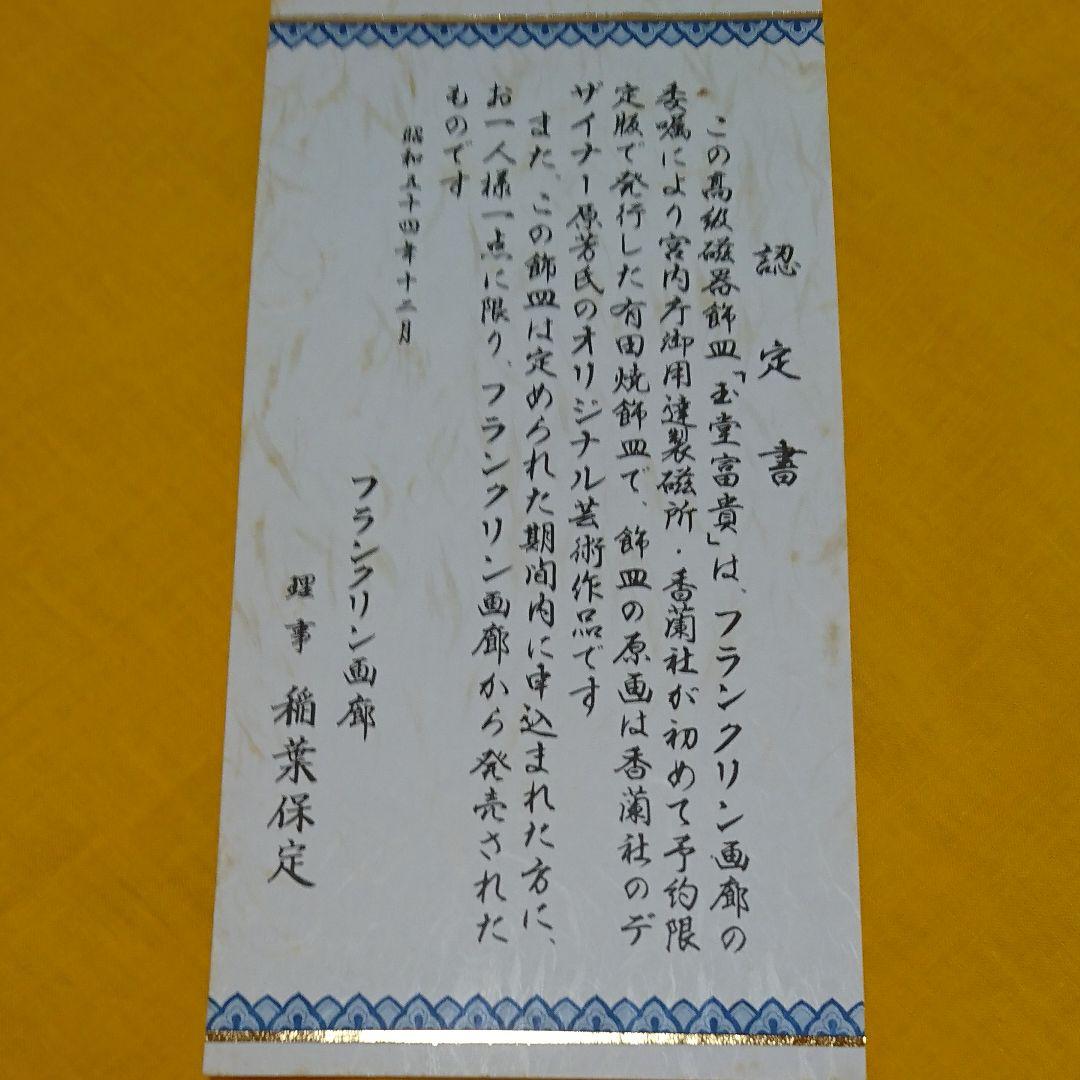 認定書
この高級磁器飾皿「玉堂富貴」は、フランクリン画廊の
委嘱により宮内庁御用達製磁所・香蘭社が初めて予約限
定版で発行した有田焼飾皿で、飾皿の原画は香蘭社のデ
ザイナー原芳氏のオリジナル芸術作品です
また、この飾皿は定められた期間内に申込まれた方に、
お一人様一点に限り、フランクリン画廊から発売された
ものです
昭和五十四年十二月
フランクリン画廊
理事 稲葉保定